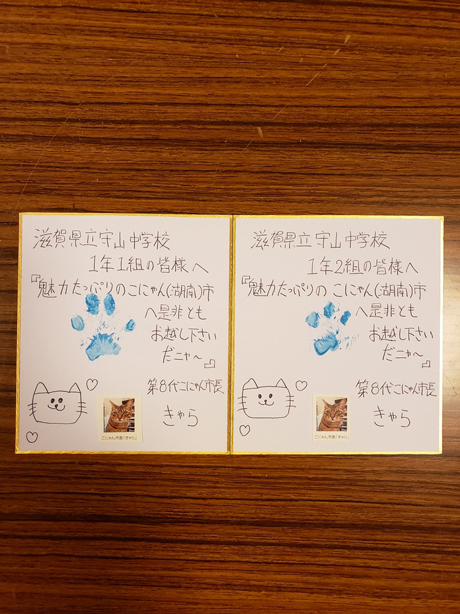 滋賀県立守山中学校
1年1組の皆様へ
『魅力たっぷりのこにゃん(湖南)市
へ是非とも
お越し下さい
だニャ〜』
第8代こにゃん市長
きゃら
こにゃん市長「きゃら」
滋賀県立守山中学校
1年2組の皆様へ
『魅力たっぷりのこにゃん(湖南)市
へ是非とも
お越し下さい
だニャ〜』
第8代こにゃん市長
きゃら
こにゃん市長「きゃら」